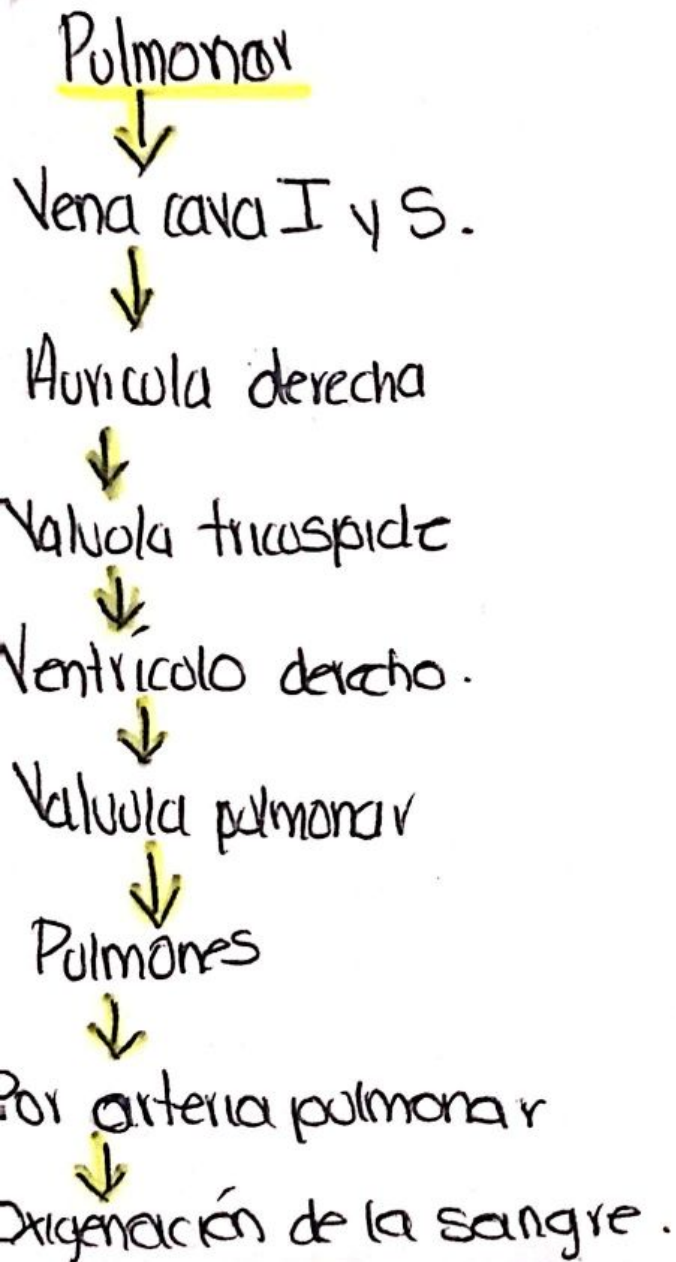 Pulmonar
Vena cava I y S.
Auricula derecha
Valvola tricuspide
Ventrícolo derecho.
Valvula pulmonar
Pulmones
Por arteria pulmonar
Oxigenación de la sangre.